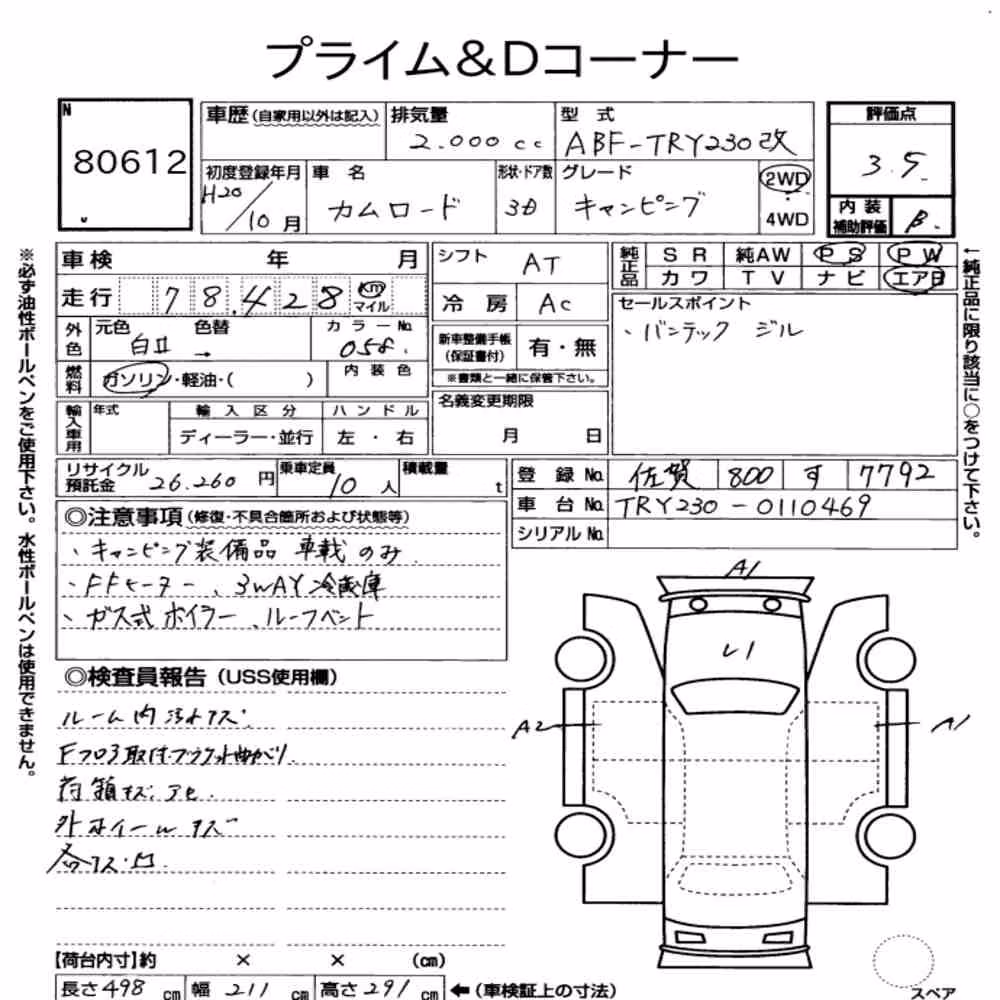 プライム&Dコーナー
N
80612
車歴(自家用以外は記入)
排気量
2.000cc
型式
ABF-TRY230改
評価点
3.5
初度登録年月
H20/10月
車名
カムロード
形状・ドア数
3D
グレード
キャンピング
2WD
4WD
内装
補助評価
B.
※必ず油性ボールペンをご使用下さい。水性ボールペンは使用できません。
車検 年 月
走行 78.428 km マイル
外色
元色 色替
白II →
カラーNo.
058.
燃料
ガソリン・軽油・( )
内装色
輸入車用
年式
輸入区分
ディーラー・並行
ハンドル
左・右
シフト
AT
冷房
AC
新車整備手帳
(保証書付)
有・無
※書類と一緒に保管下さい。
名義変更期限
月 日
純正品
SR 純AW PS PW
カワ TV ナビ エアB
セールスポイント
、バンテック ジル
←純正品に限り該当に○をつけて下さい。
リサイクル
預託金
26.260円
乗車定員
10人
積載量
t
登録No.
佐賀 800 す 7792
車台No.
TRY230-0110469
シリアルNo.
◎注意事項(修復・不具合箇所および状態等)
、キャンピング装備品 車載のみ.
、FFヒーター、3WAY冷蔵庫
、ガス式ボイラー、ルーフベント
◎検査員報告(USS使用欄)
ルーム内汚れキズ.
荷箱キズ.アセ.
外ホイールキズ
各キズ・凹.
A1
レ1
A2
A1
【荷台内寸】約 × × (cm)
長さ498cm 幅211cm 高さ291cm ←(車検証上の寸法)
スペア